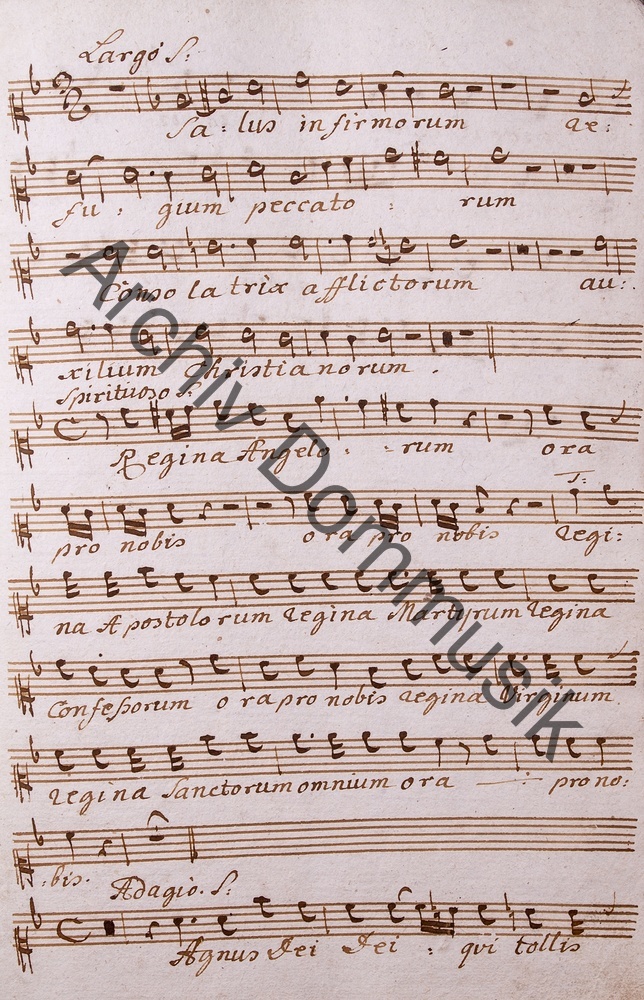 Largo S:
Sa: lus infirmorum re:
fu: gium peccato : rum
Conso latrix afflictorum au:
xilium Christianorum.
Spirituoso S:
Regina Angelo: rum ora
T:
pro nobis ora pro nobis regi:
na Apostolorum regina Martyrum regina
Confeßorum ora pro nobis regina Virginum
regina Sanctorum omnium ora prono:
bis.
Adagio. S:
Agnus Dei Dei : qui tollis
Archiv Dommusik